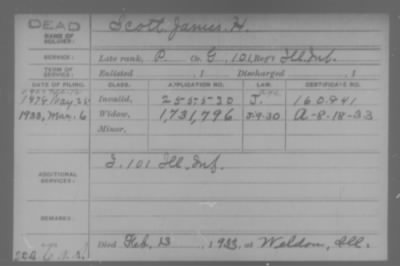 DEAD
NAME OF SOLDIER: Scott, James H.
SERVICE: Late rank, P. Co. G, 101, Reg't Ill. Inf.
TERM OF SERVICE: Enlisted , 1 Discharged , 1
DATE OF FILING. CLASS. APPLICATION NO. LAW. CERTIFICATE NO.
Invalid, 255530 J. 160.941
1933, Mar. 6 Widow, 1,731,796 5-9.30 A-8-18-33
Minor,
ADDITIONAL SERVICES: I. 101 Ill. Inf.
REMARKS:
Died Feb. 13 , 1933, at Weldon, Ill.